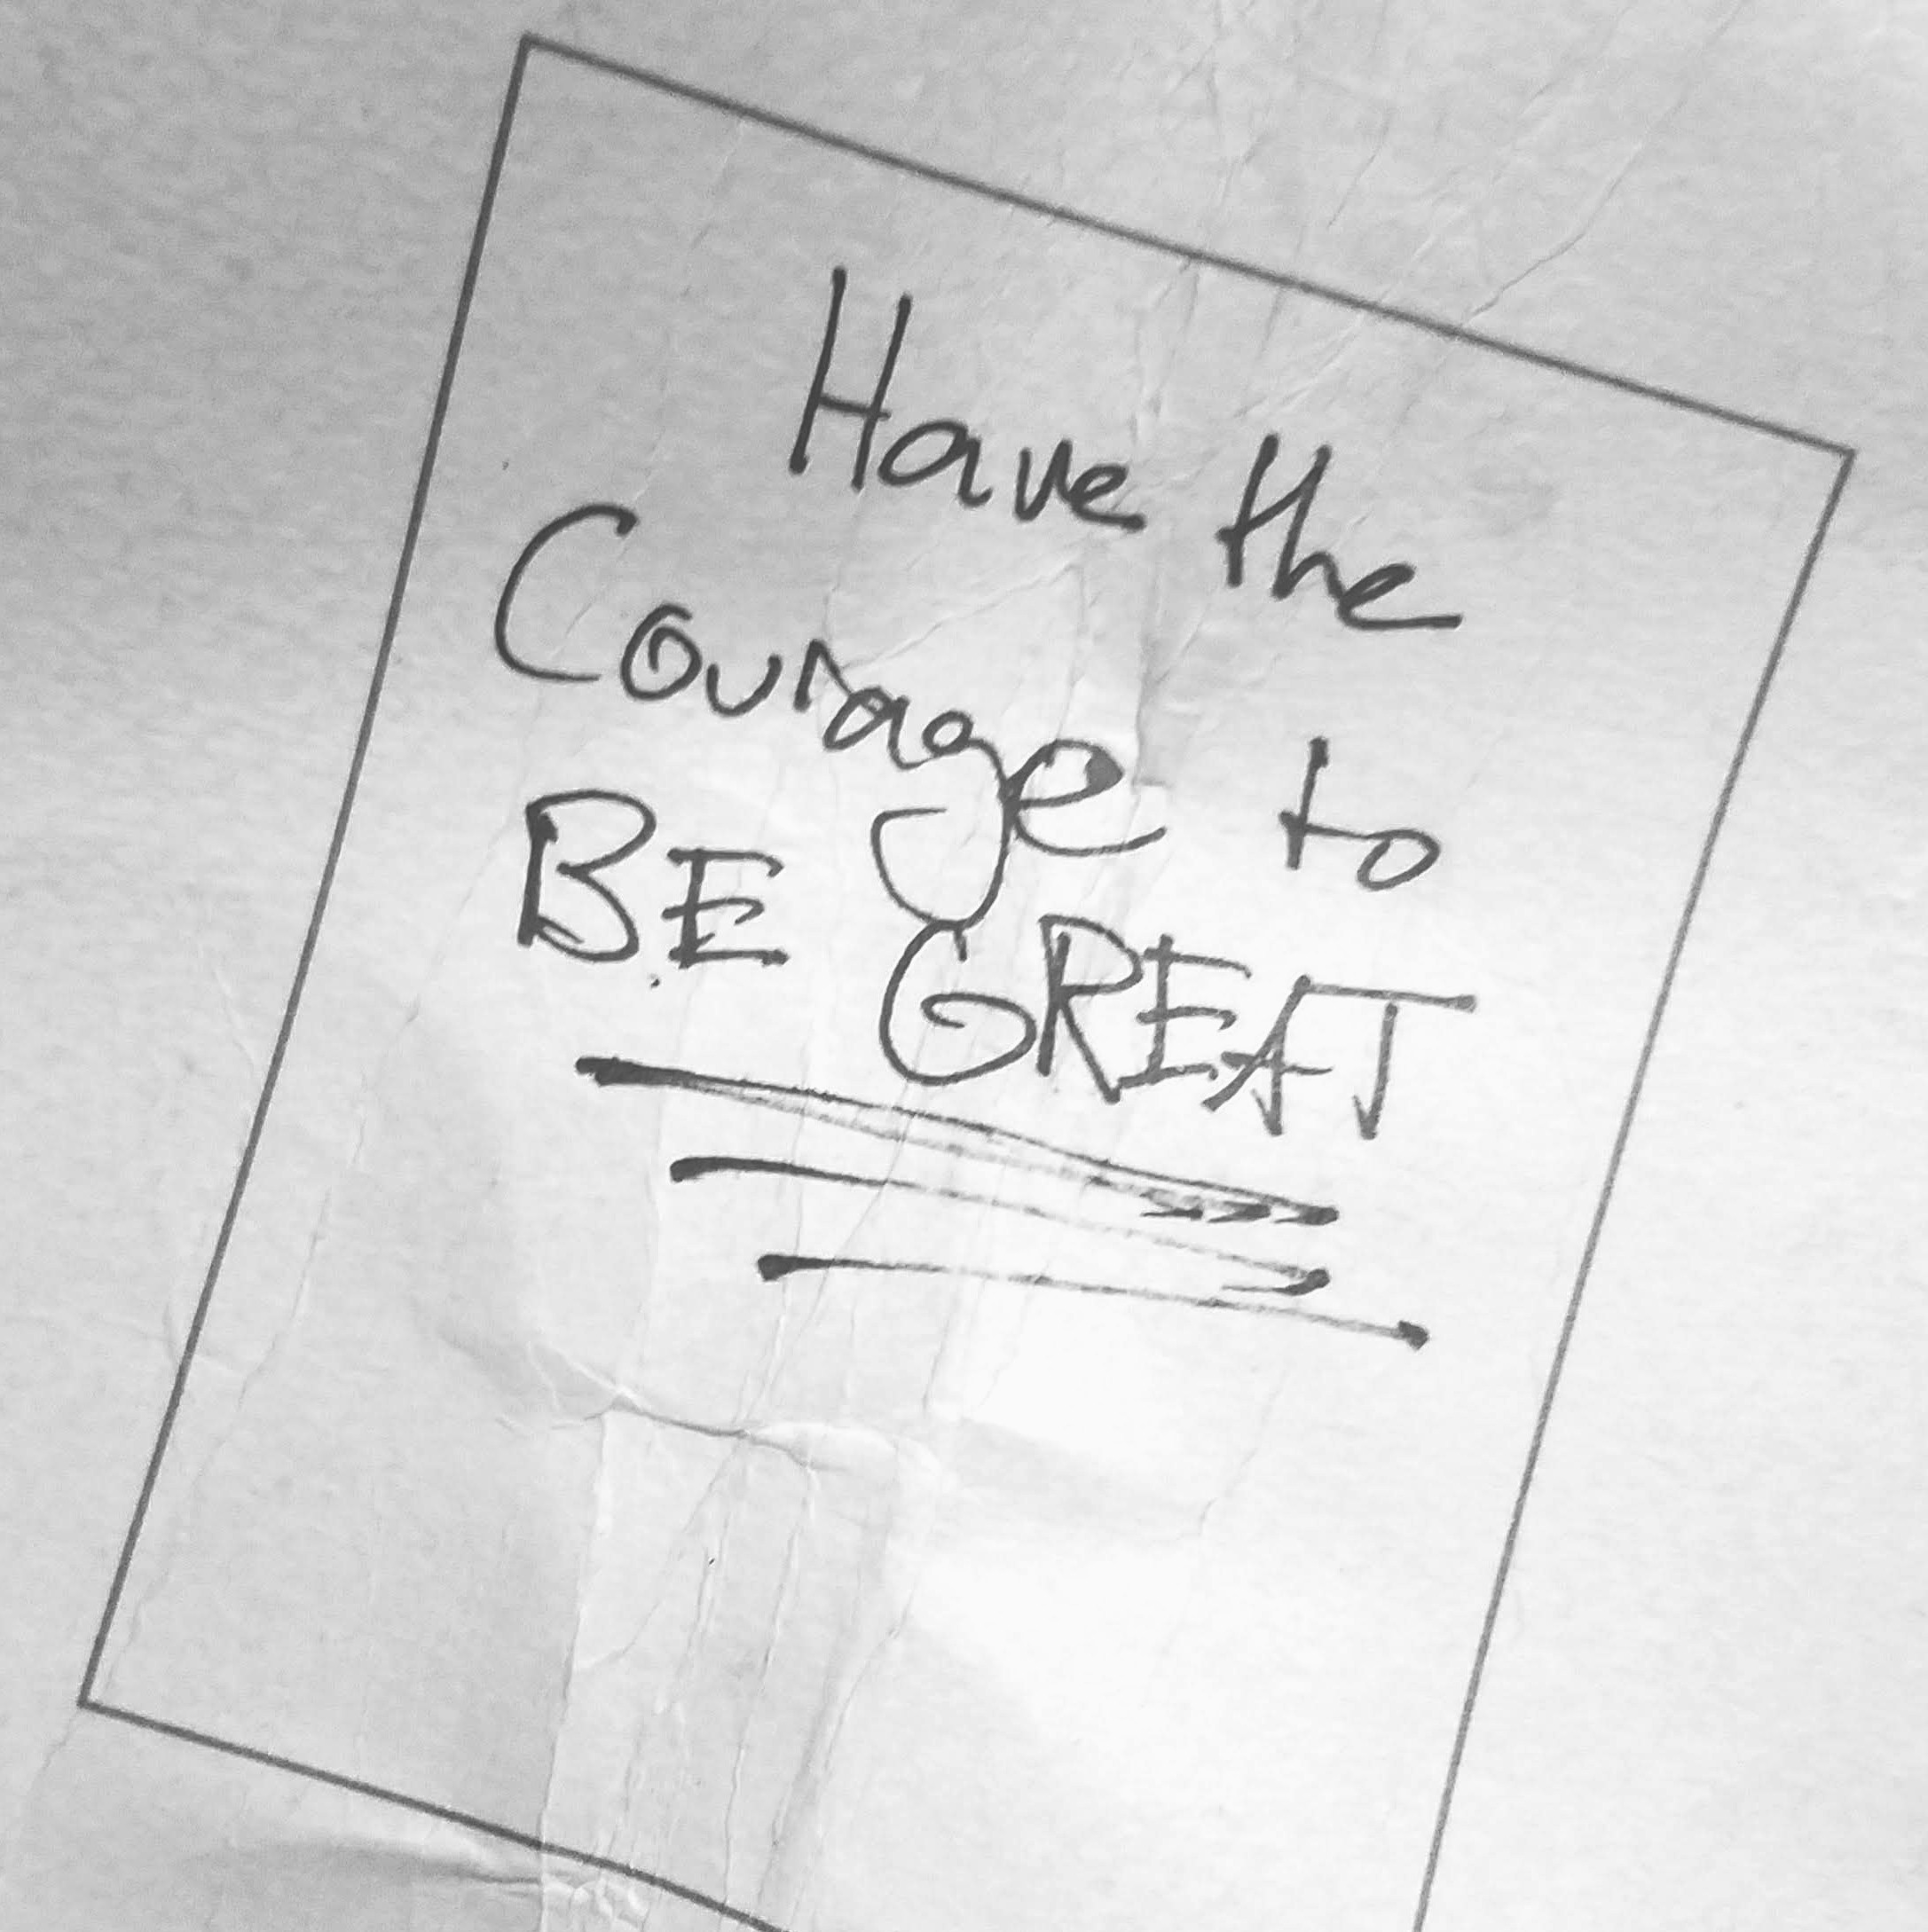 Have the
Courage to
BE GREAT